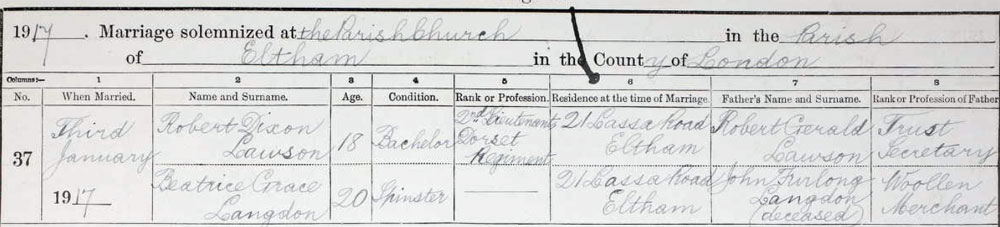 1917. Marriage solemnized at the Parish Church in the Parish
of Eltham in the County of London
Columns:— 1 2 3 4 5 6 7 8
No. When Married. Name and Surname. Age. Condition. Rank or Profession. Residence at the time of Marriage. Father's Name and Surname. Rank or Profession of Father
37 Third January 1917 Robert Dixon Lawson 18 Bachelor 2nd Lieutenant Dorset Regiment 21 Lassa Road Eltham Robert Gerald Lawson Trust Secretary
Beatrice Grace Langdon 20 Spinster 21 Lassa Road Eltham John Furlong Langdon (deceased) Woollen Merchant